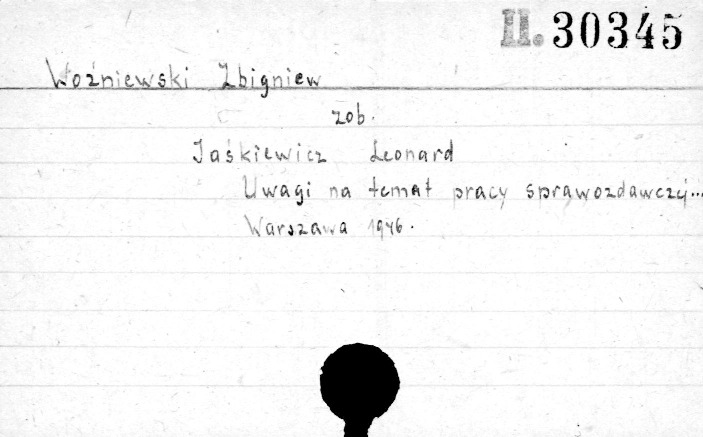 II. 30345
Woźniewski Zbigniew
zob.
Jaśkiewicz Leonard
Uwagi na temat pracy sprawozdawczej...
Warszawa 1946.